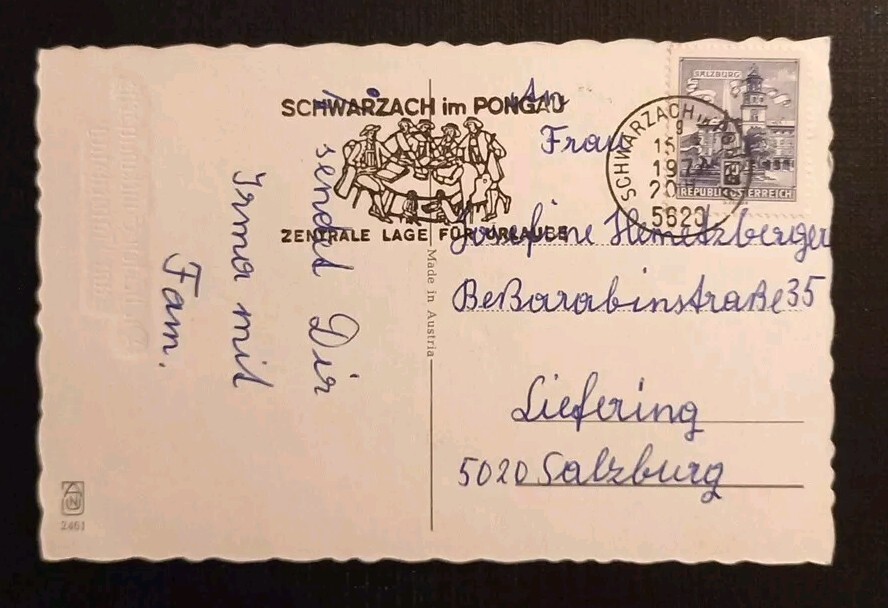 sendet Dir
Irma mit
Fam.
SCHWARZACH im PONGAU
ZENTRALE LAGE FÜR URLAUBE
Made in Austria
2461
SALZBURG
REPUBLIK ÖSTERREICH
SCHWARZACH im
9
15
197
20
5620
An
Frau
Josefine Hemetzberger
Beßarabinstraße 35
Liefering
5020 Salzburg